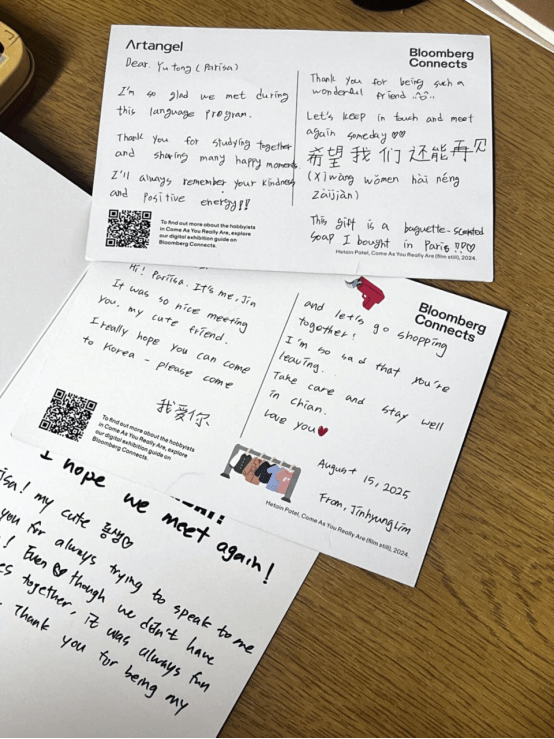 Artangel
Bloomberg
Connects
Dear. Yutong (Parisa)
I'm so glad we met during
this language program.
Thank you for studying together
and sharing many happy moments
I'll always remember your kindness
and positive energy!!
To find out more about the hobbyists
in Come As You Really Are, explore
our digital exhibition guide on
Bloomberg Connects.
Thank you for being such a
wonderful friend
Let's keep in touch and meet
again someday♡♡
希望我们还能再见
(Xīwàng wǒmen hái néng
zàijiàn)
This gift is a baguette-scented
soap I bought in Paris !!♡
Hetain Patel, Come As You Really Are (film still), 2024.
Hi! Pariisa. It's me, Jin
It was so nice meeting
you. my cute friend.
I really hope you can come
to Korea - please come
我爱你
To find out more about the hobbyists
in Come As You Really Are, explore
our digital exhibition guide on
Bloomberg Connects.
Bloomberg
Connects
and let's go shopping
together!
I'm so sad that you're
leaving.
Take care and stay well
in chian.
Love you♥
August 15, 2025
From, Jinhyung Lim
Hetain Patel, Come As You Really Are (film still), 2024.
I hope we meet again!
my cute 동생♡
you for always trying to speak to me
! Even though we didn't have
together, it was always fun
Thank you for being my